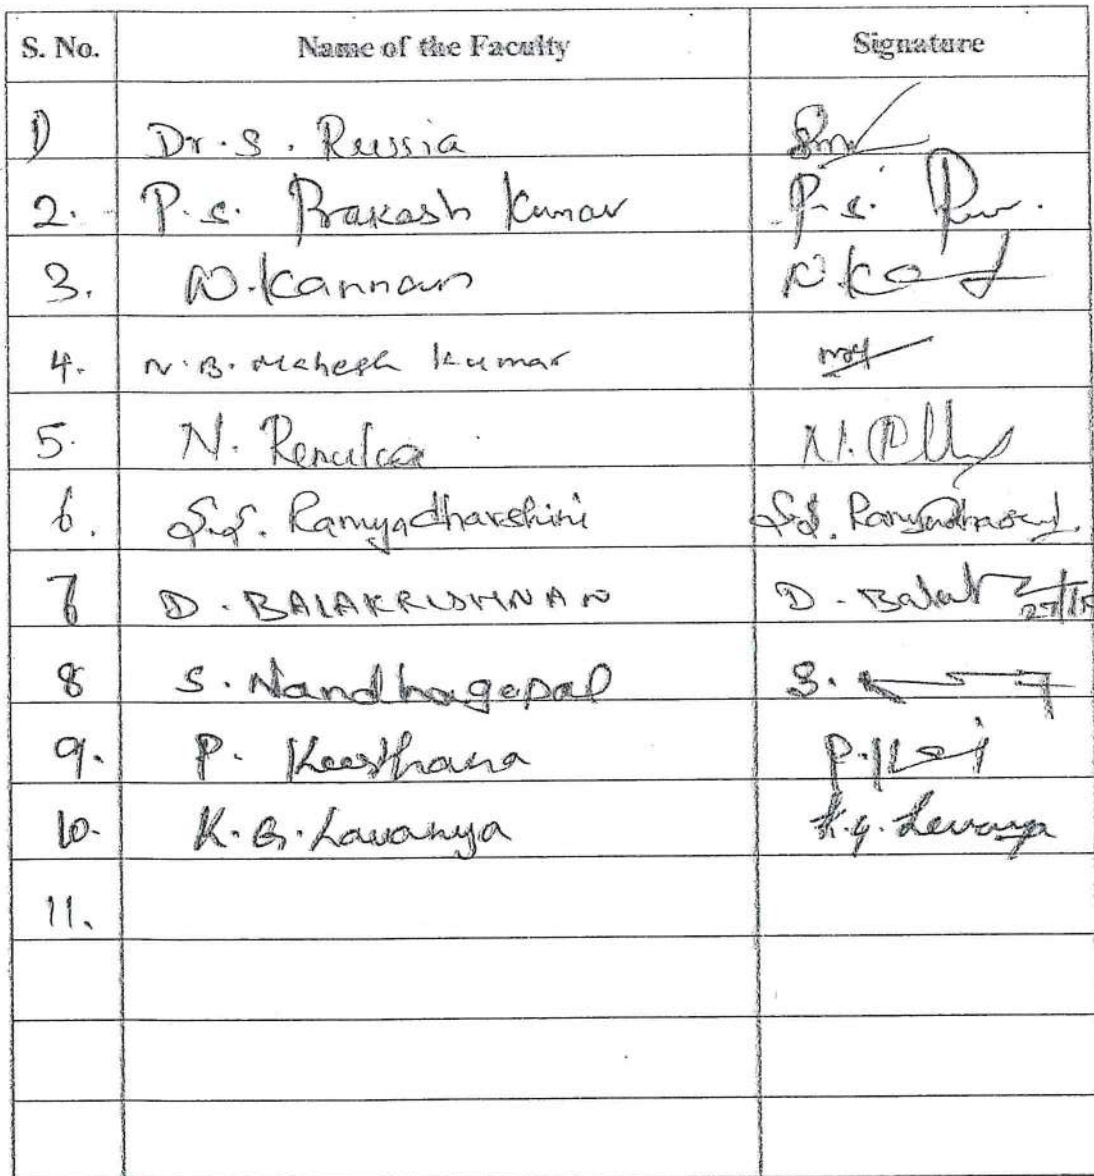 S. No. Name of the Faculty Signature
1) Dr. S. Russia
2. P.S. Prakash Kumar P.S.
3. N. Kannan N.
4. N.B. Mahesh Kumar
5. N. Renuka N.
6. S.S. Ramyadharshini S.S.
7 D. BALAKRISHNAN D.
8 S. Nandhagopal S.
9. P. Keerthana P.
10. K.G. Lavanya K.G. Lavanya
11.